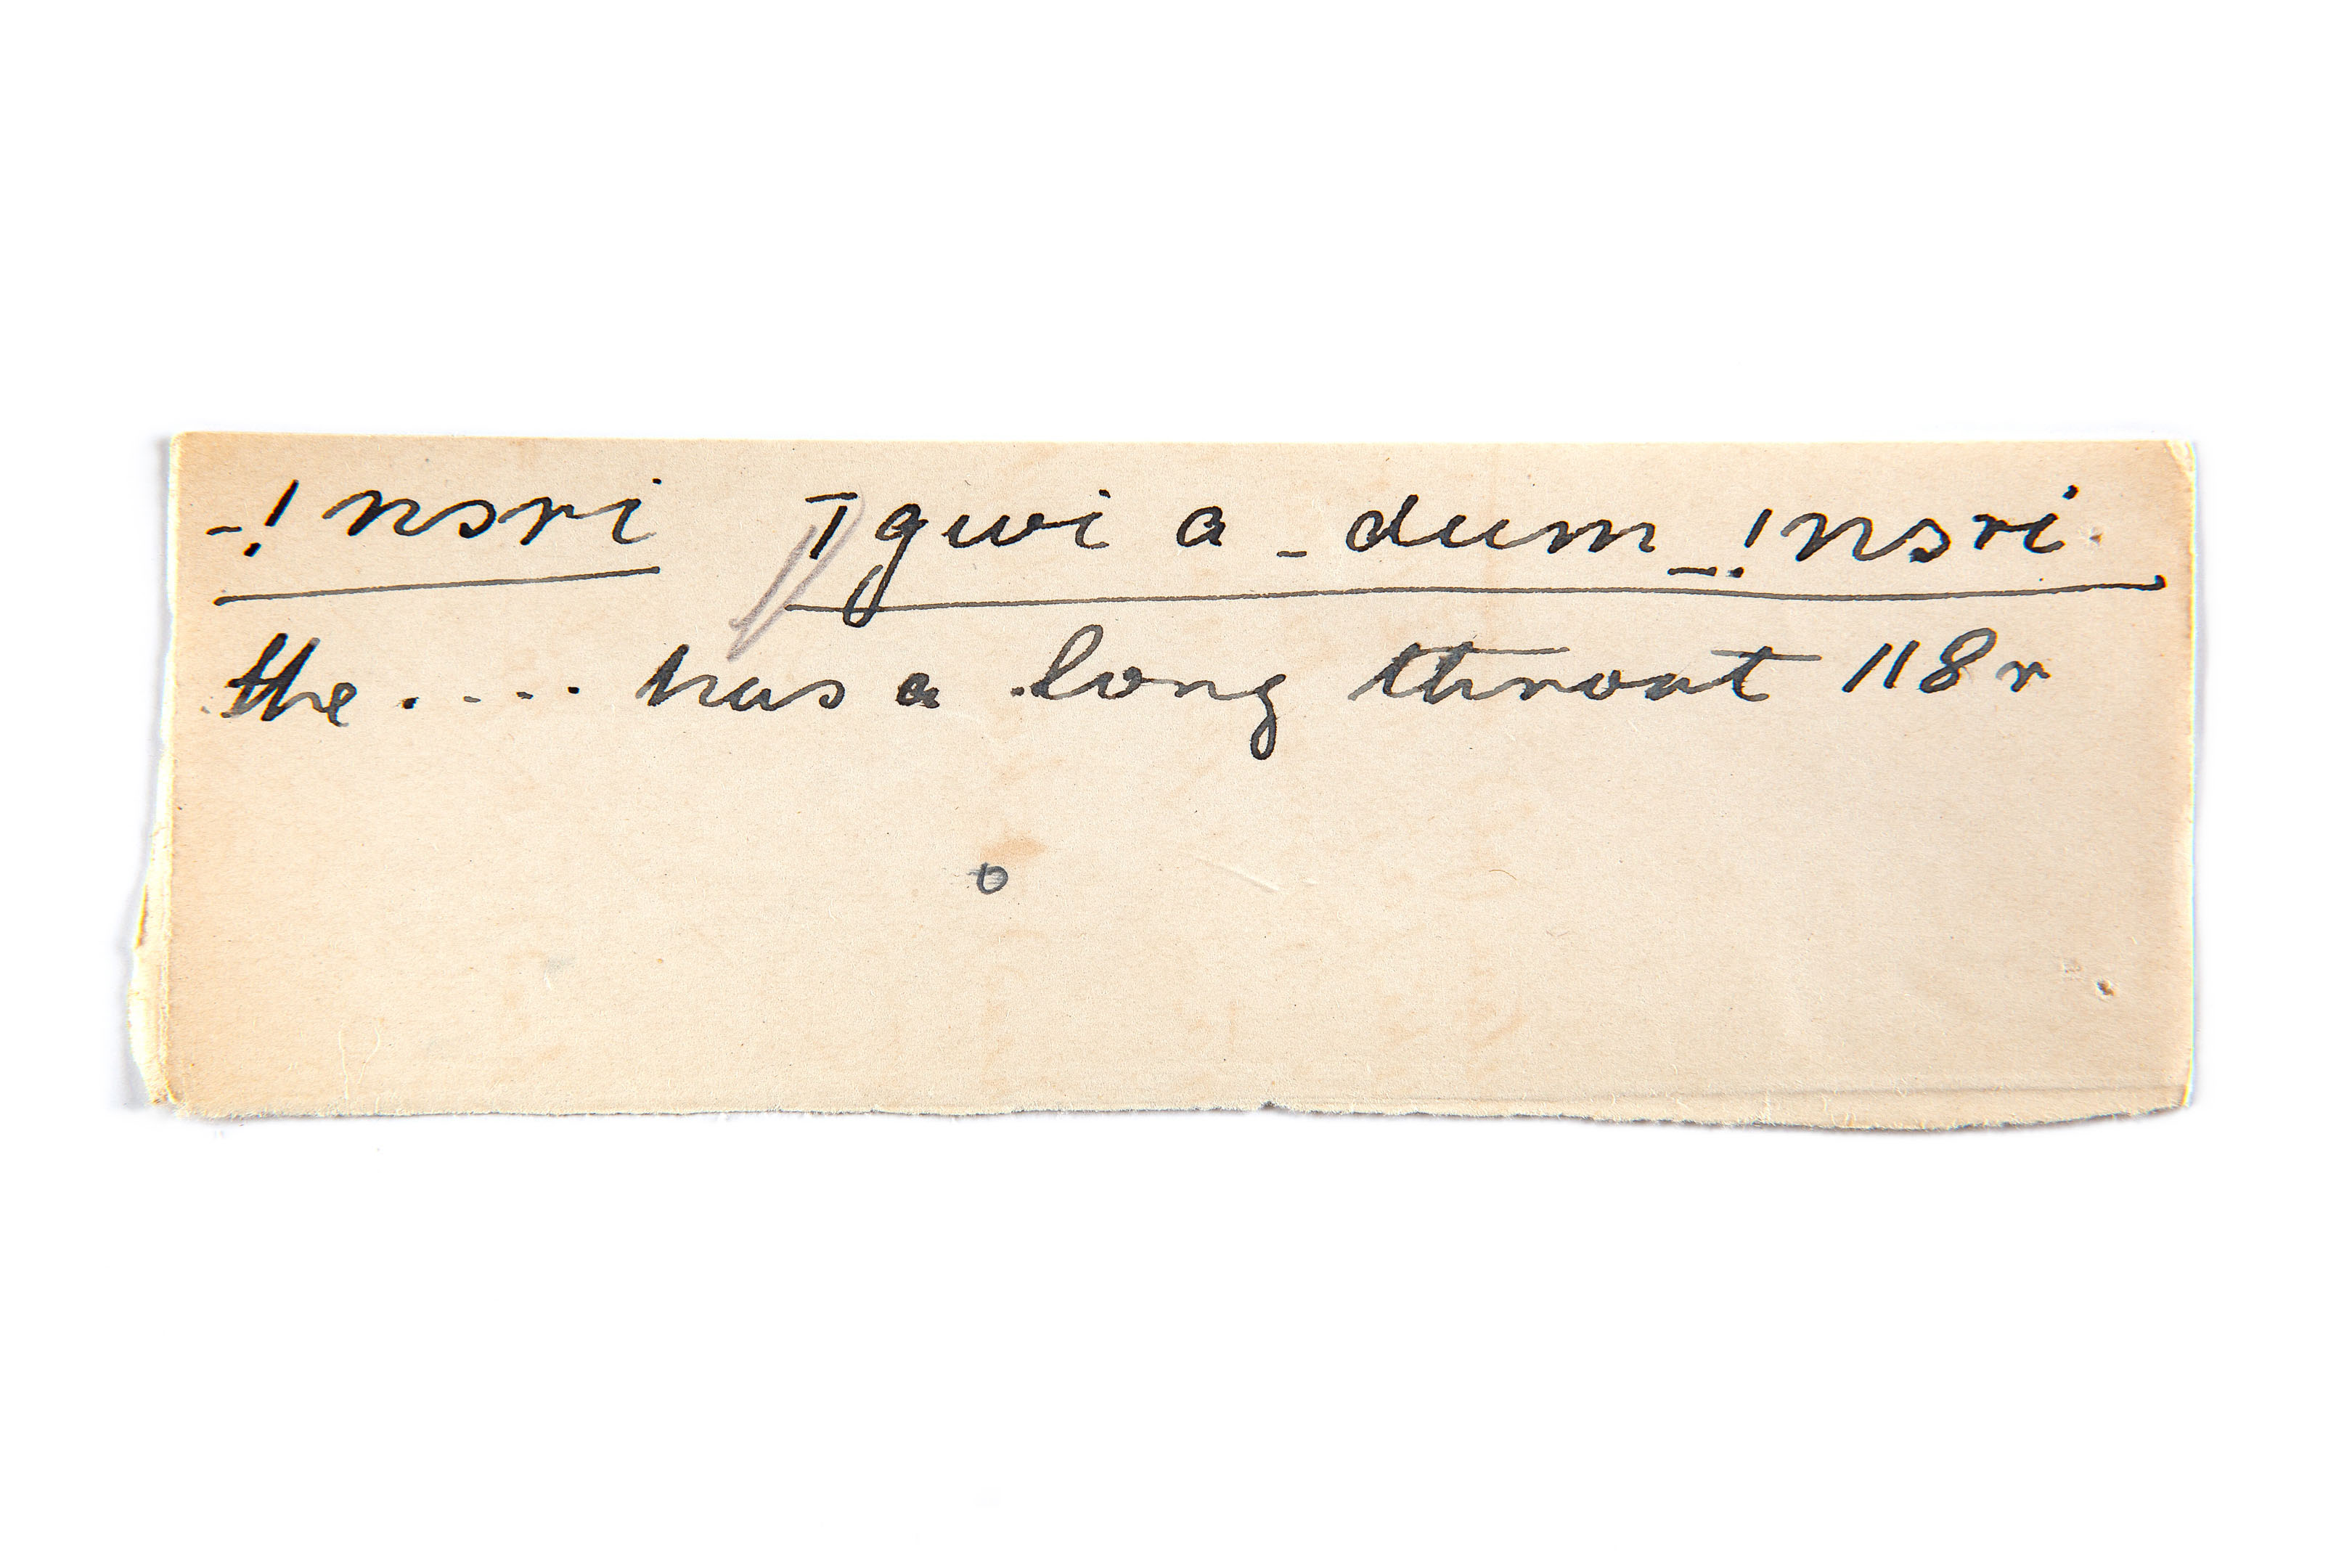 _! nsri ˥gwi a _ dum _! nsri.
the . . . . has a long throat 118 r